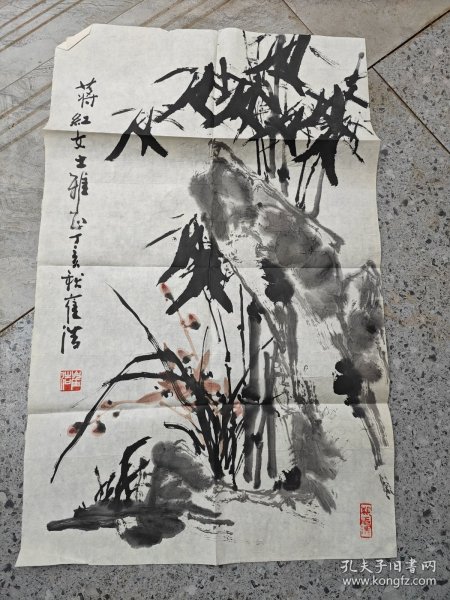 蒋红女士雅正丁亥秋崔浩
孔夫子旧书网
www.kongfz.com